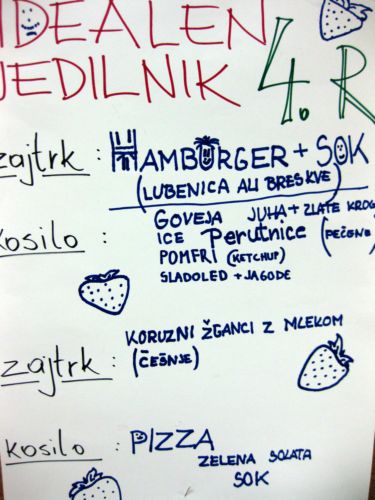 IDEALEN
JEDILNIK 4. R
zajtrk : HAMBURGER + SOK
(LUBENICA ALI BRESKVE)
kosilo : GOVEJA JUHA + ZLATE KROG
ICE Perutnice (PEČENE
POMFRI (KETCHUP)
SLADOLED + JAGODE
zajtrk : KORUZNI ŽGANCI Z MLEKOM
(ČEŠNJE)
kosilo : PIZZA
ZELENA SOLATA
SOK